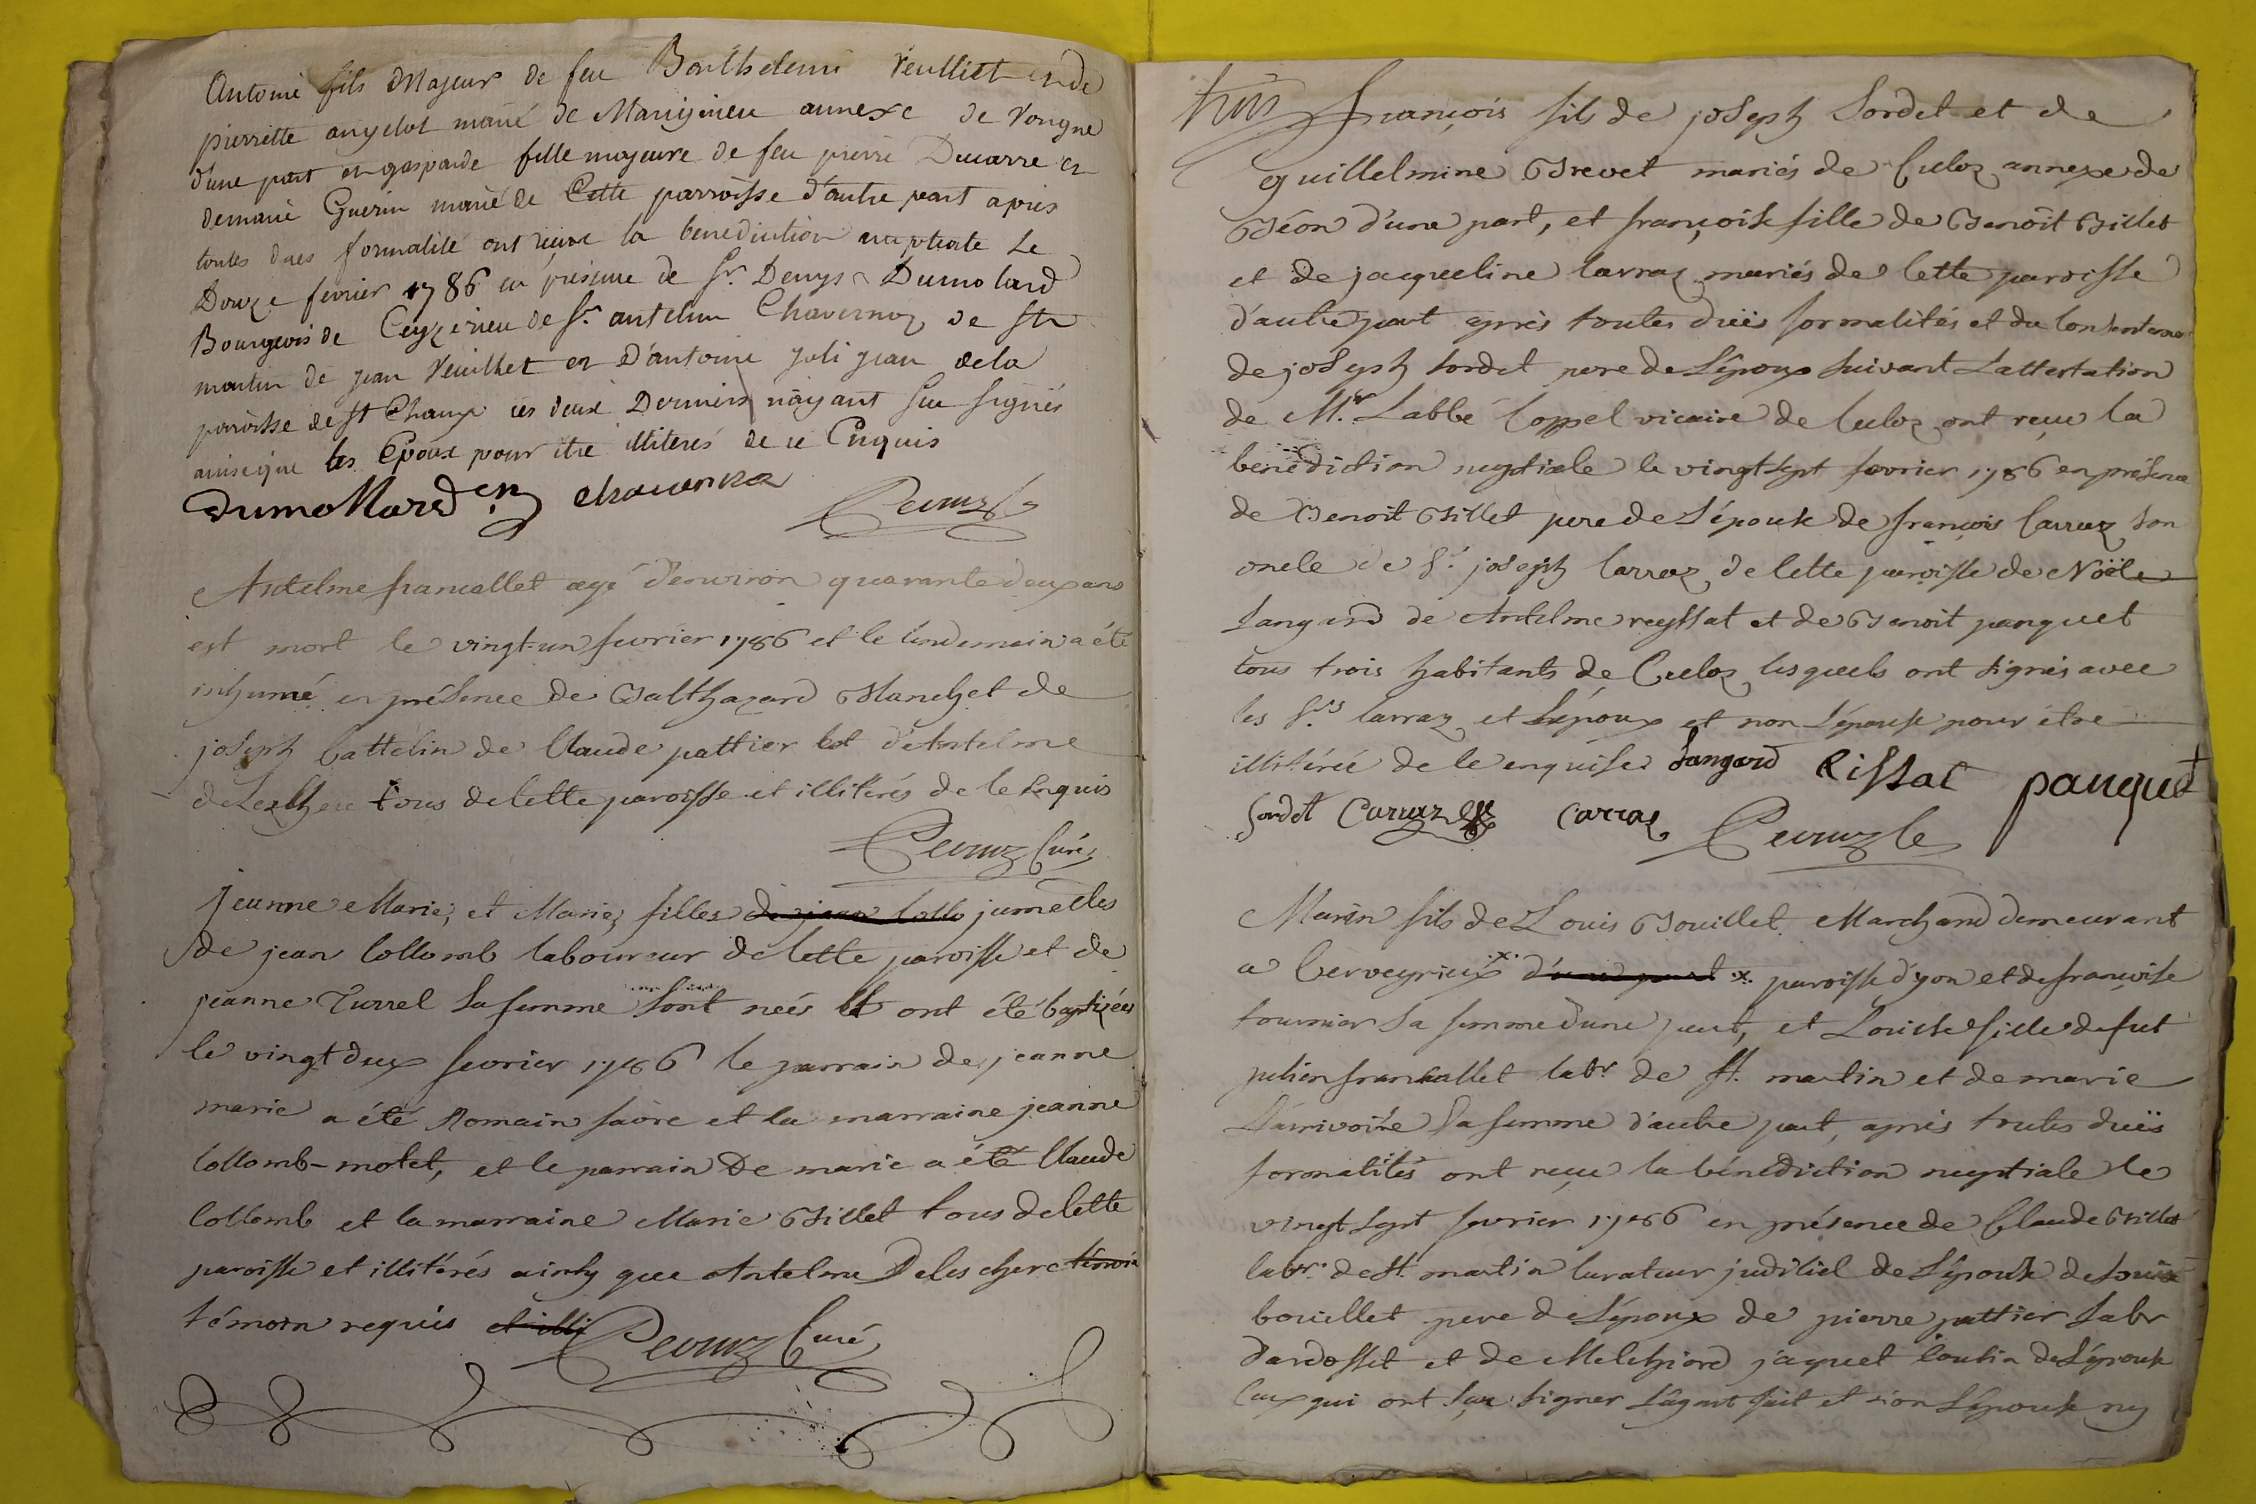 Antoine fils Majeur de feu Barthelemi Veulliet et de
pierrette angelot marié de Marignieu annexe de Vongne
d'une part et gasparde fille majeure de feu pierre Ducarre et
de marie Guerin marié de Cette parroisse d'autre part après
toutes dues formalité ont reçue la benediction nuptiale Le
Douze fevrier 1786 en présence de Sr. Denys Dumolard
Bourgeois de Ceyzerieu de Sr. antelme Chavernoz de St
martin de jean Veuilliet et D'antoine joli jean de la
paroisse de St Champ ces deux Derniers n'ayant sçu signés
ainsi que les Epoux pour être illiterés de ce Enquis
Dumollard chavernoz
Anthelme francallet agé d'environ quarante deux ans
est mort le vingt-un fevrier 1786 et le lendemain a été
inhumé en présence de Balthazard Blanchet de
joseph Cattelin de Claude pattier et d'Antelme
tous de Cette paroisse et illiterés de Ce Enquis
Curé
jeanne Marie, et Marie, filles de jean Collo jumelles
de jean Collomb laboureur de Cette paroisse et de
jeanne Turrel sa femme sont neés et ont été baptizées
le vingt deux fevrier 1786 le parrain de jeanne
marie a été Romain favre et la marraine jeanne
Collomb-motet, et le parrain De marie a été Claude
Collomb et la marraine Marie Billet tous de Cette
paroisse et illitérés ainsy que Antelme Delescherc témoin
témoin requis et illi
Curé
françois fils de joseph Sordet et de
guillelmine Brevet mariés de Culoz annexe de
Béon d'une part, et françoise fille de Benoît Billet
et de jacqueline Carraz mariés de Cette paroisse
d'autre part après toutes duës formalités et du Consentement
de joseph Sordet pere de L'époux suivant L'attestation
de Mr. L'abbé Coppel vicaire de Culoz ont reçue la
benediction nuptiale le vingt sept fevrier 1786 en présence
de Benoit Billet pere de L'épouse de françois Carraz son
oncle de Sr. joseph Carraz de Cette paroisse de Noële
Sangard de Antelme reyssat et de Benoit panquet
tous trois habitants de Culoz lesquels ont signés avec
les Srs Carraz et L'époux et non L'épouse pour étre
illitérée de Ce enquise Sangard Rissat panquet
Sordet Carraz carraz
Marin fils de Louis Bouillet Marchand demeurant
a Cerveyrieux d'une part x paroisse d'yon et de françoise
tournier sa femme d'une part, et Louise fille de fut
julien francallet labr. de St. martin et de marie
Larrivoire sa femme d'autre part, après toutes duës
formalités ont reçue la bénédiction nuptiale le
vingt sept fevrier 1786 en présence de Claude Billet
labr. de St. martin Curateur juditiel de L'épouse de Louis
bouillet pere de L'époux de pierre pattier Labr
d'ardosset et de Melchiord jaquet Cousin de L'épouse
Ceux qui ont sçu signer L'ayant fait et non L'épouse ny